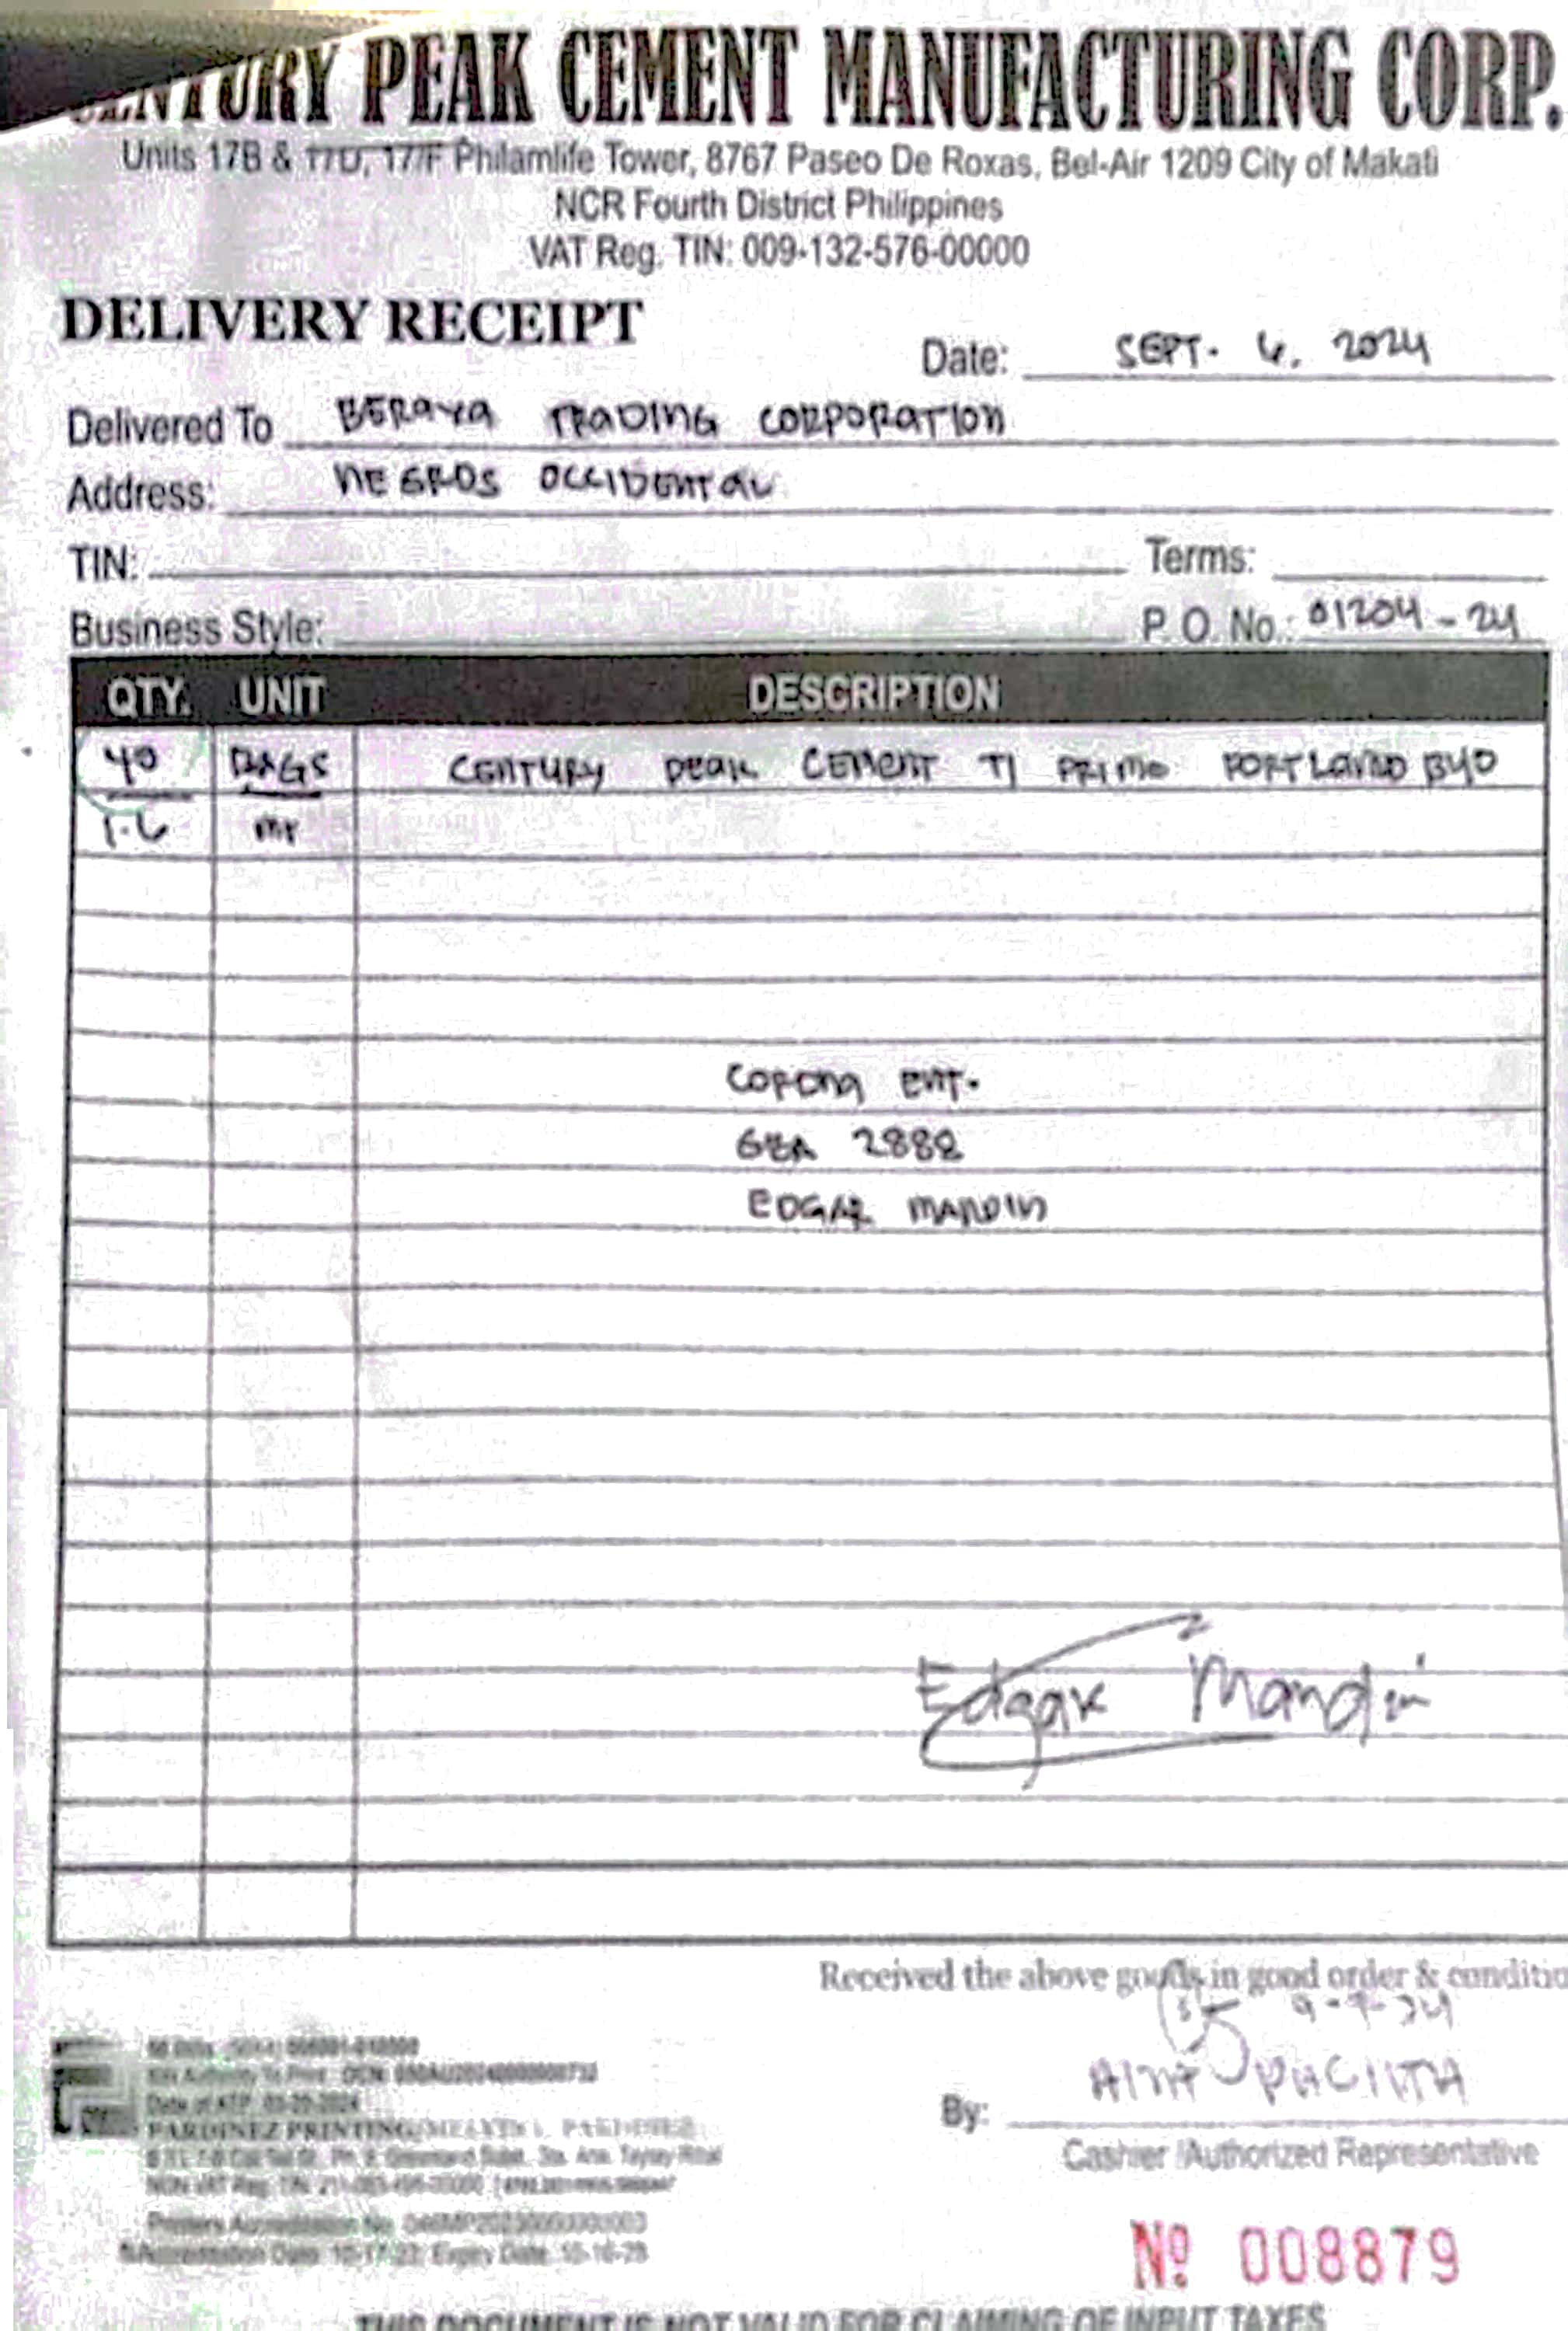 CENTURY PEAK CEMENT MANUFACTURING CORP.
Units 17B & 17D, 17/F Philamlife Tower, 8767 Paseo De Roxas, Bel-Air 1209 City of Makati
NCR Fourth District Philippines
VAT Reg. TIN: 009-132-576-00000
DELIVERY RECEIPT
Date: SEPT. 6, 2024
Delivered To BERAYA TRADING CORPORATION
Address: NEGROS OCCIDENTAL
TIN: Terms:
Business Style: P.O. No.: 01204-24
QTY. UNIT DESCRIPTION
40 BAGS CENTURY PEAK CEMENT T1 PRIMO PORTLAND B40
1.6 MT
CORONA ENT.
2888
EDGAR MANDIN
Edgar Mandin
Received the above goods in good order & conditio
9-7-24
By:
Cashier /Authorized Representative
Date of ATP
PARDINEZ PRINTING
NON VAT Reg. TIN
Printers Accreditation No.
Accreditation Date: 10-17-23; Expiry Date: 10-16-28
Nº 008879
THIS DOCUMENT IS NOT VALID FOR CLAIMING OF INPUT TAXES